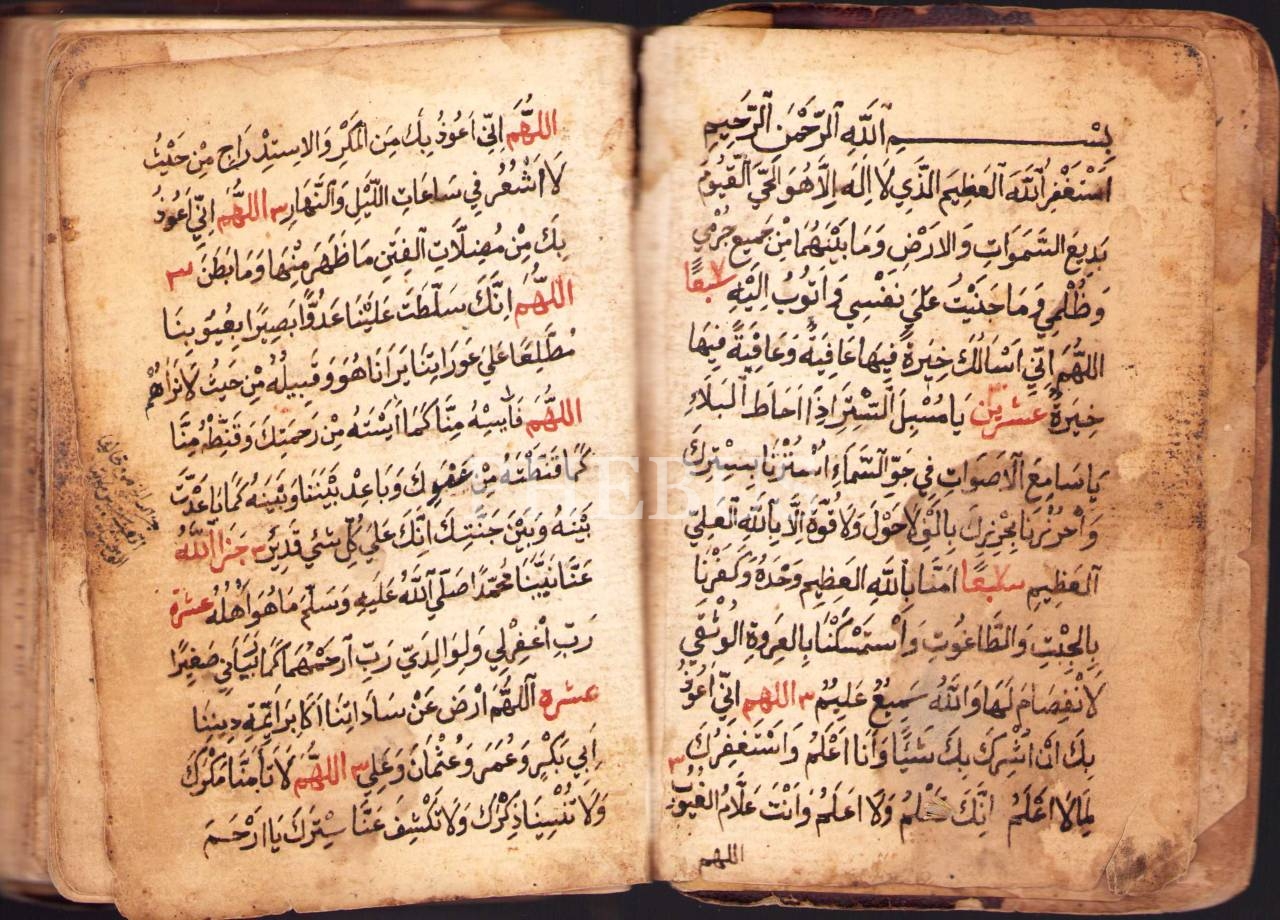 بِسْــــــمِ ٱللَّهِ ٱلرَّحْمَٰنِ ٱلرَّحِيمِ
اَسْتَغْفِرُ ٱللَّهَ ٱلعَظِيمَ الَّذِي لَا اِلَهَ اِلَّا هُوَ الحَيَّ ٱلقَيُّومَ
بَدِيعَ السَّمَوَاتِ وَالارَضِ وَمَا بَيْنَهُمَا مِنْ جَمِيعِ جُرْمِي
وَظُلْمِي وَمَا جَنَيْتُ عَلَى نَفْسِي وَاَتُوبُ اِلَيْهِ سَبْعًا ٧
اللَّهُمَّ اِنِّي اَسْالُكَ خِيَرَةً فِيهَا عَافِيَةٌ وَعَافِيَةً فِيهَا
خِيَرَةٌ عشرين يَا مُسْبِلَ السِّتْرِ اِذَا اَحَاطَ البَلَاءُ
يَا سَامِعَ الاَصْوَاتِ فِي جَوِّ السَّمَاءِ اسْتُرْنَا بِسِتْرِكَ
وَاَحْرُزْنَا بِحِرْزِكَ لاحَوْلَ وَلَا قُوَّةَ اِلَّا بِاللَّهِ العَلِيِّ
العَظِيمِ سَبْعًا اٰمَنَّا بِاللَّهِ العَظِيمِ وَحْدَهُ وَكَفَرْنَا
بِالجِبْتِ وَالطَّاغُوتِ وَاسْتَمْسَكْنَا بِالعُرْوَةِ الوُثْقَى
لَانْفِصَامَ لَهَا وَاللَّهُ سَمِيعٌ عَلِيمٌ ٣ اللهم اِنِّي اَعُوذُ
بِكَ اَنْ اُشْرِكَ بِكَ شَيْئًا وَاَنَا اَعْلَمُ وَاَسْتَغْفِرُكَ ٣
لِمَا لَا اَعْلَمُ اِنَّكَ تَعْلَمُ وَلَا اَعْلَمُ وَاَنْتَ عَلَّامُ الغُيُوبِ
اللهم
اللَّهُمَّ اِنِّي اَعُوذُ بِكَ مِنَ المَكْرِ وَالاِسْتِدْرَاجِ مِنْ حَيْثُ
لَا اَشْعُرُ فِي سَاعَاتِ اللَّيْلِ وَالنَّهَارِ ٣ اللَّهُمَّ اِنِّي اَعُوذُ
بِكَ مِنْ مُضِلَّاتِ الفِتَنِ مَا ظَهَرَ مِنْهَا وَمَا بَطَنَ ٣
اللَّهُمَّ اِنَّكَ سَلَّطْتَ عَلَيْنَا عَدُوًّا بَصِيرًا بِعُيُوبِنَا
مُطَّلِعًا عَلَى عَوْرَاتِنَا يَرَانَا هُوَ وَقَبِيلُهُ مِنْ حَيْثُ لَا نَرَاهُمْ
اللَّهُمَّ فَاٰيِسْهُ مِنَّا كَمَا اٰيَسْتَهُ مِنْ رَحْمَتِكَ وَقَنِّطْهُ مِنَّا
كَمَا قَنَّطْتَهُ مِنْ عَفْوِكَ وَبَاعِدْ بَيْنَنَا وَبَيْنَهُ كَمَا بَاعَدْتَ
بَيْنَهُ وَبَيْنَ جَنَّتِكَ اِنَّكَ عَلَى كُلِّ شَيْءٍ قَدِيرٌ ٣ جَزَا اللَّهُ
عَنَّا نَبِيَّنَا مُحَمَّدًا صَلَّى اللَّهُ عَلَيْهِ وَسَلَّمَ مَا هُوَ اَهْلُهُ عشرة
رَبِّ اغْفِرْلِي وَلِوَالِدَيَّ رَبِّ ارْحَمْهُمَا كَمَا رَبَّيَانِي صَغِيرًا
عشره اَللَّهُمَّ ارْضَ عَنْ سَادَاتِنَا اَكَابِرِ اَئِمَّةِ دِينِنَا
اَبِي بَكْرٍ وَعُمَرَ وَعُثْمَانَ وَعَلِي ٣ اللَّهُمَّ لَا تَأمَنَّا مَكْرَكَ
وَلَا تُنْسِينَا ذِكْرَكَ وَلَا تَكْشِفْ عَنَّا سِتْرَكَ يَا اَرْحَمَ